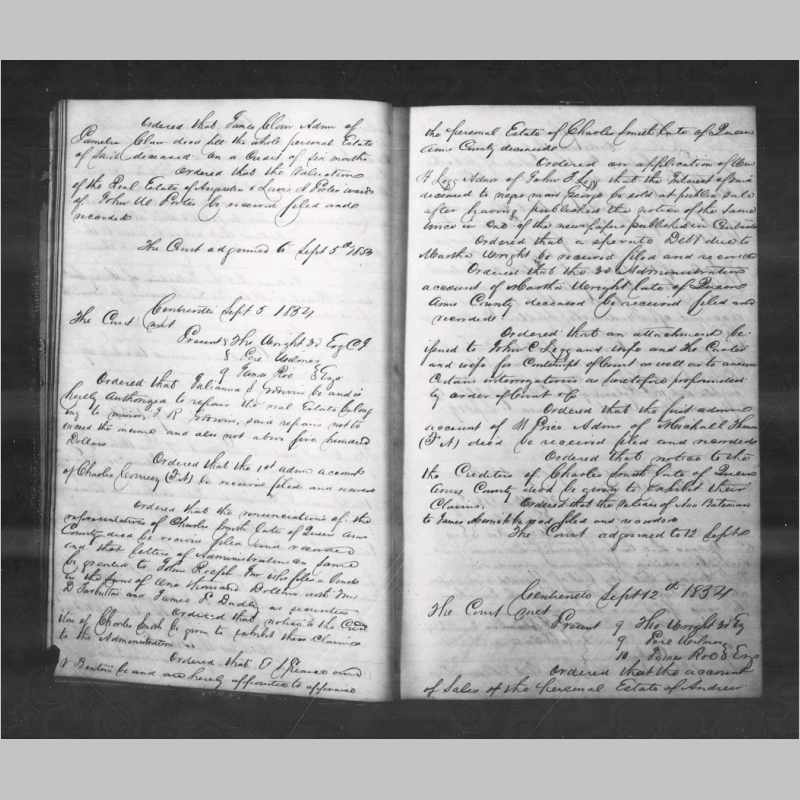 Ordered that James Clow Admr of
Pamelia Clow decd sell the whole personal Estate
of said deceased on a Credit of six months
Ordered that the Valuation
of the Real Estate of Augustus & Lewis A Porter wards
of John W Porter be received filed and
recorded
The Court adjourned to Sept 5th 1854
Centreville Sept 5 1854
The Court met
Present Tho Wright 3d Esq C J
8 Pere Wilmer
9 James Roe Esqs
Ordered that Julianna be and is
hereby Authorized to repair the real Estate belong
ing to minor, J R said repairs not to
exceed the income and also not above five hundred
Dollars
Ordered that the 1st admn account
of Charles (F. N) be received filed and record
Ordered that the renunciation of the
representatives of Charles Smith late of Queen Anns
County decd be received filed and recorded
and that letters of Administration on same
be granted to John who files a bond
in the sum of One thousand Dollars with Wm
D Tarbutton and James P. Dudley as securities
Ordered that notice to the Cred
itors of Charles Smith be given to exhibit their Claims
to the Administration
Ordered that Pearce and
Benton be and are hereby appointed to appraise
the personal Estate of Charles Smith late of Queen
Anns County deceased
Ordered on application of Wm
H Legg Admr of John F Legg that the Interest of said
deceased to negro man George be sold at public sale
after having published the notice of the same
twice in one of the newspapers published in Centreville
Ordered that a sperate Debt due to
Martha Wright be received filed and recorded
Ordered that the 3d Administration
account of Martha Wright late of Queen
Anns County deceased be received filed and
recorded
Ordered that an attachment be
issued to John C Legg and wife and Tho Carter
and wife for Contempt of Court as well as to answer
Certain interrogatories as heretofore propounded
by order of Court &c
Ordered that the first admn
account of W Price Admr of Marshall
(F N) decd be received filed and recorded
Ordered that notice to the
the Creditors of Charles Smith late of Queen
Anns County decd be given to exhibit their
Claims. Ordered that the Release of Noa Bateman
to James be filed and recorded
The Court adjourned to 12 Sept
Centreville Sept 12th 1854
The Court met
Present 9 Tho Wright 3d Esq
9 Pere Wilmer
10 James Roe Esqs
Ordered that the account
of Sales of the personal Estate of Andrew